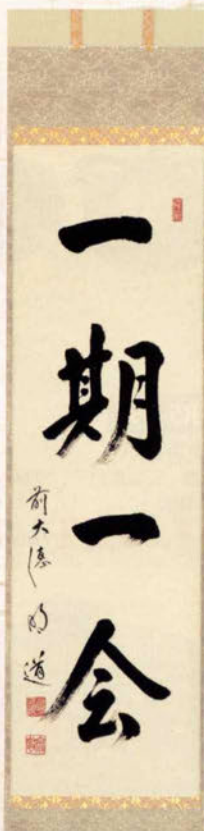 一期一会
前大徳明道